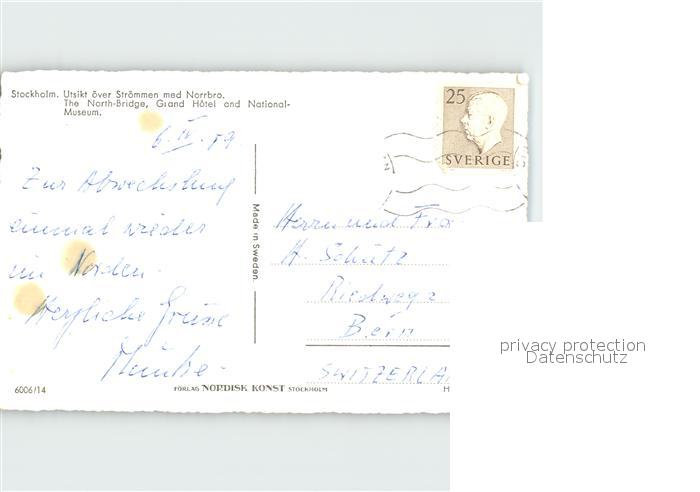 Stockholm. Utsikt över Strömmen med Norrbro.
The North-Bridge, Grand Hôtel and National-
Museum.
25
SVERIGE
6. IV. 59.
Zur Abwechslung
einmal wieder
im Norden.
Herzliche Grüsse
Made in Sweden.
Herrn und
H. Schütz
Riedweg
Bern
SWITZERLA
6006/14
FÖRLAG NORDISK KONST STOCKHOLM
H
privacy protection
Datenschutz